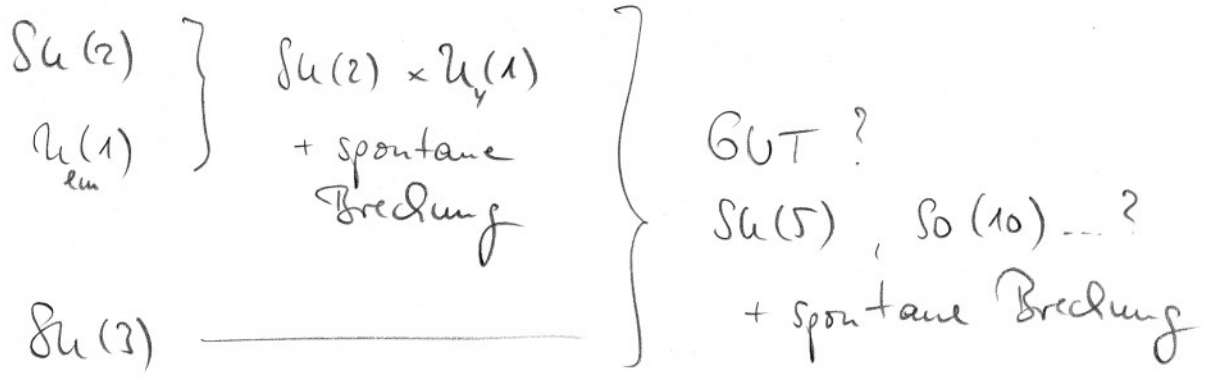 SU(2)
U(1)
em
SU(2) × U_y(1)
+ spontane
Brechung
SU(3)
GUT ?
SU(5) , SO(10) ... ?
+ spontane Brechung